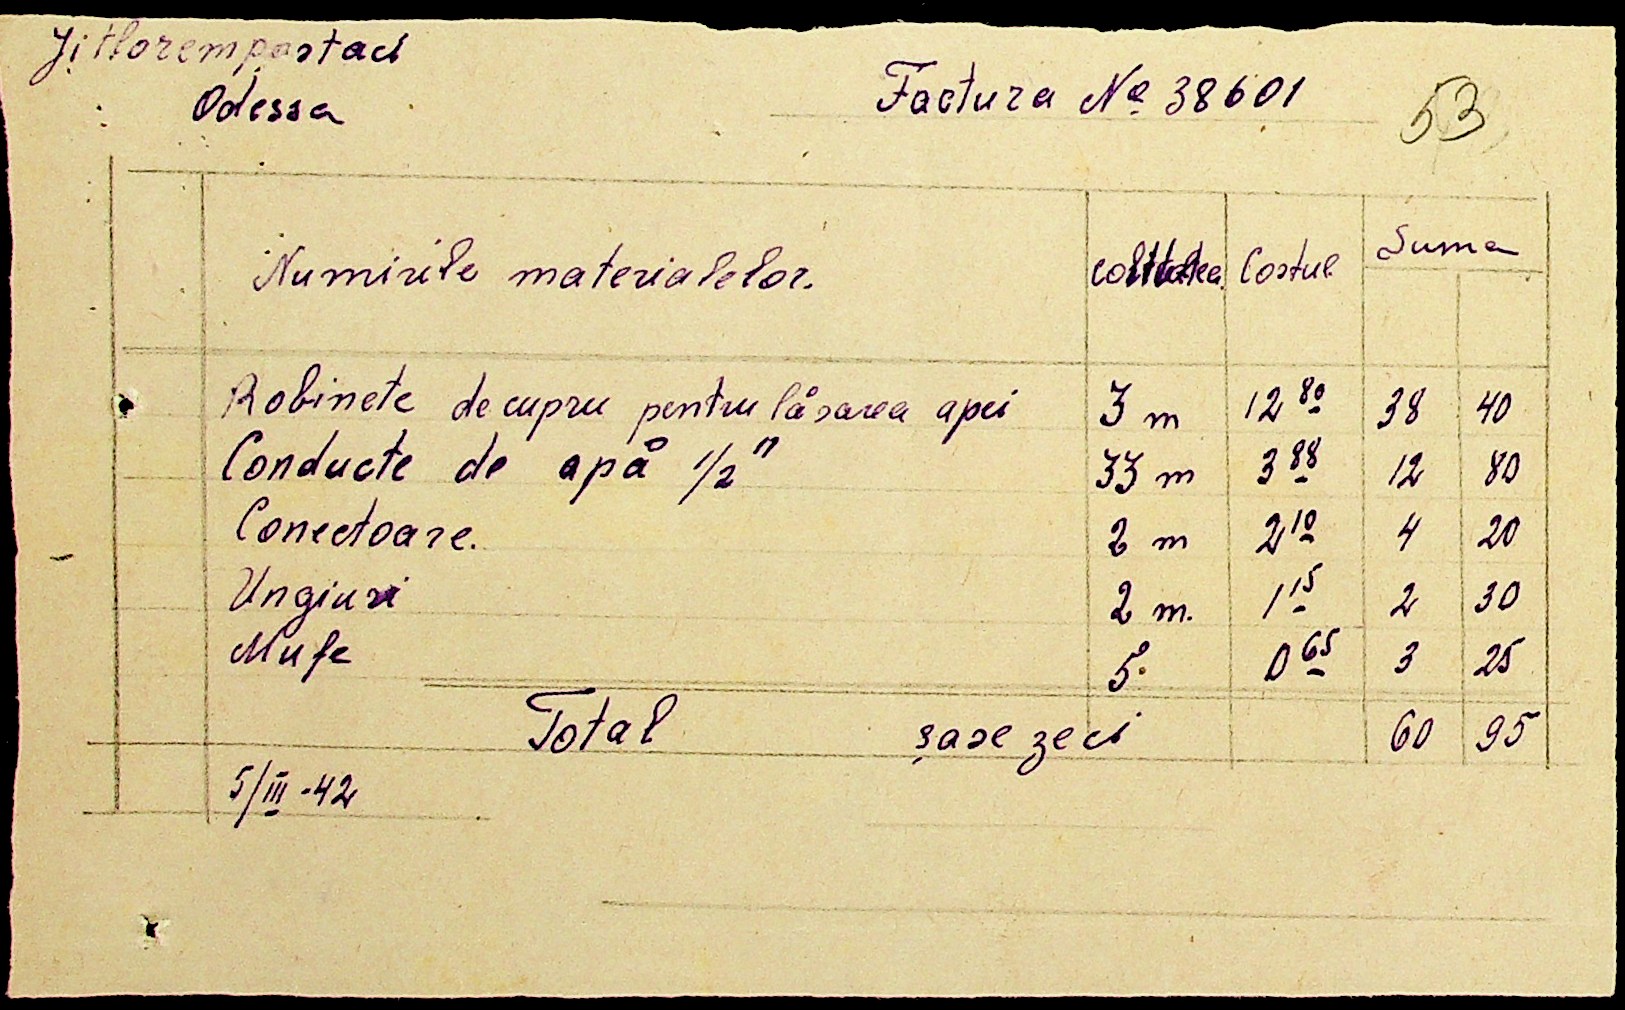 Jitlorempostaci
Odessa
Factura № 38601
53
Numirile materialelor. Costul Suma
Robinete de cupru pentru lăsarea apei 3 m 12 80 38 40
Conducte de apă 1/2" 33 m 3 88 12 80
Conectoare. 2 m 2 10 4 20
Ungiuri 2 m. 1 15 2 30
Mufe 5. 0 65 3 25
Total șase zeci 60 95
5/III-42